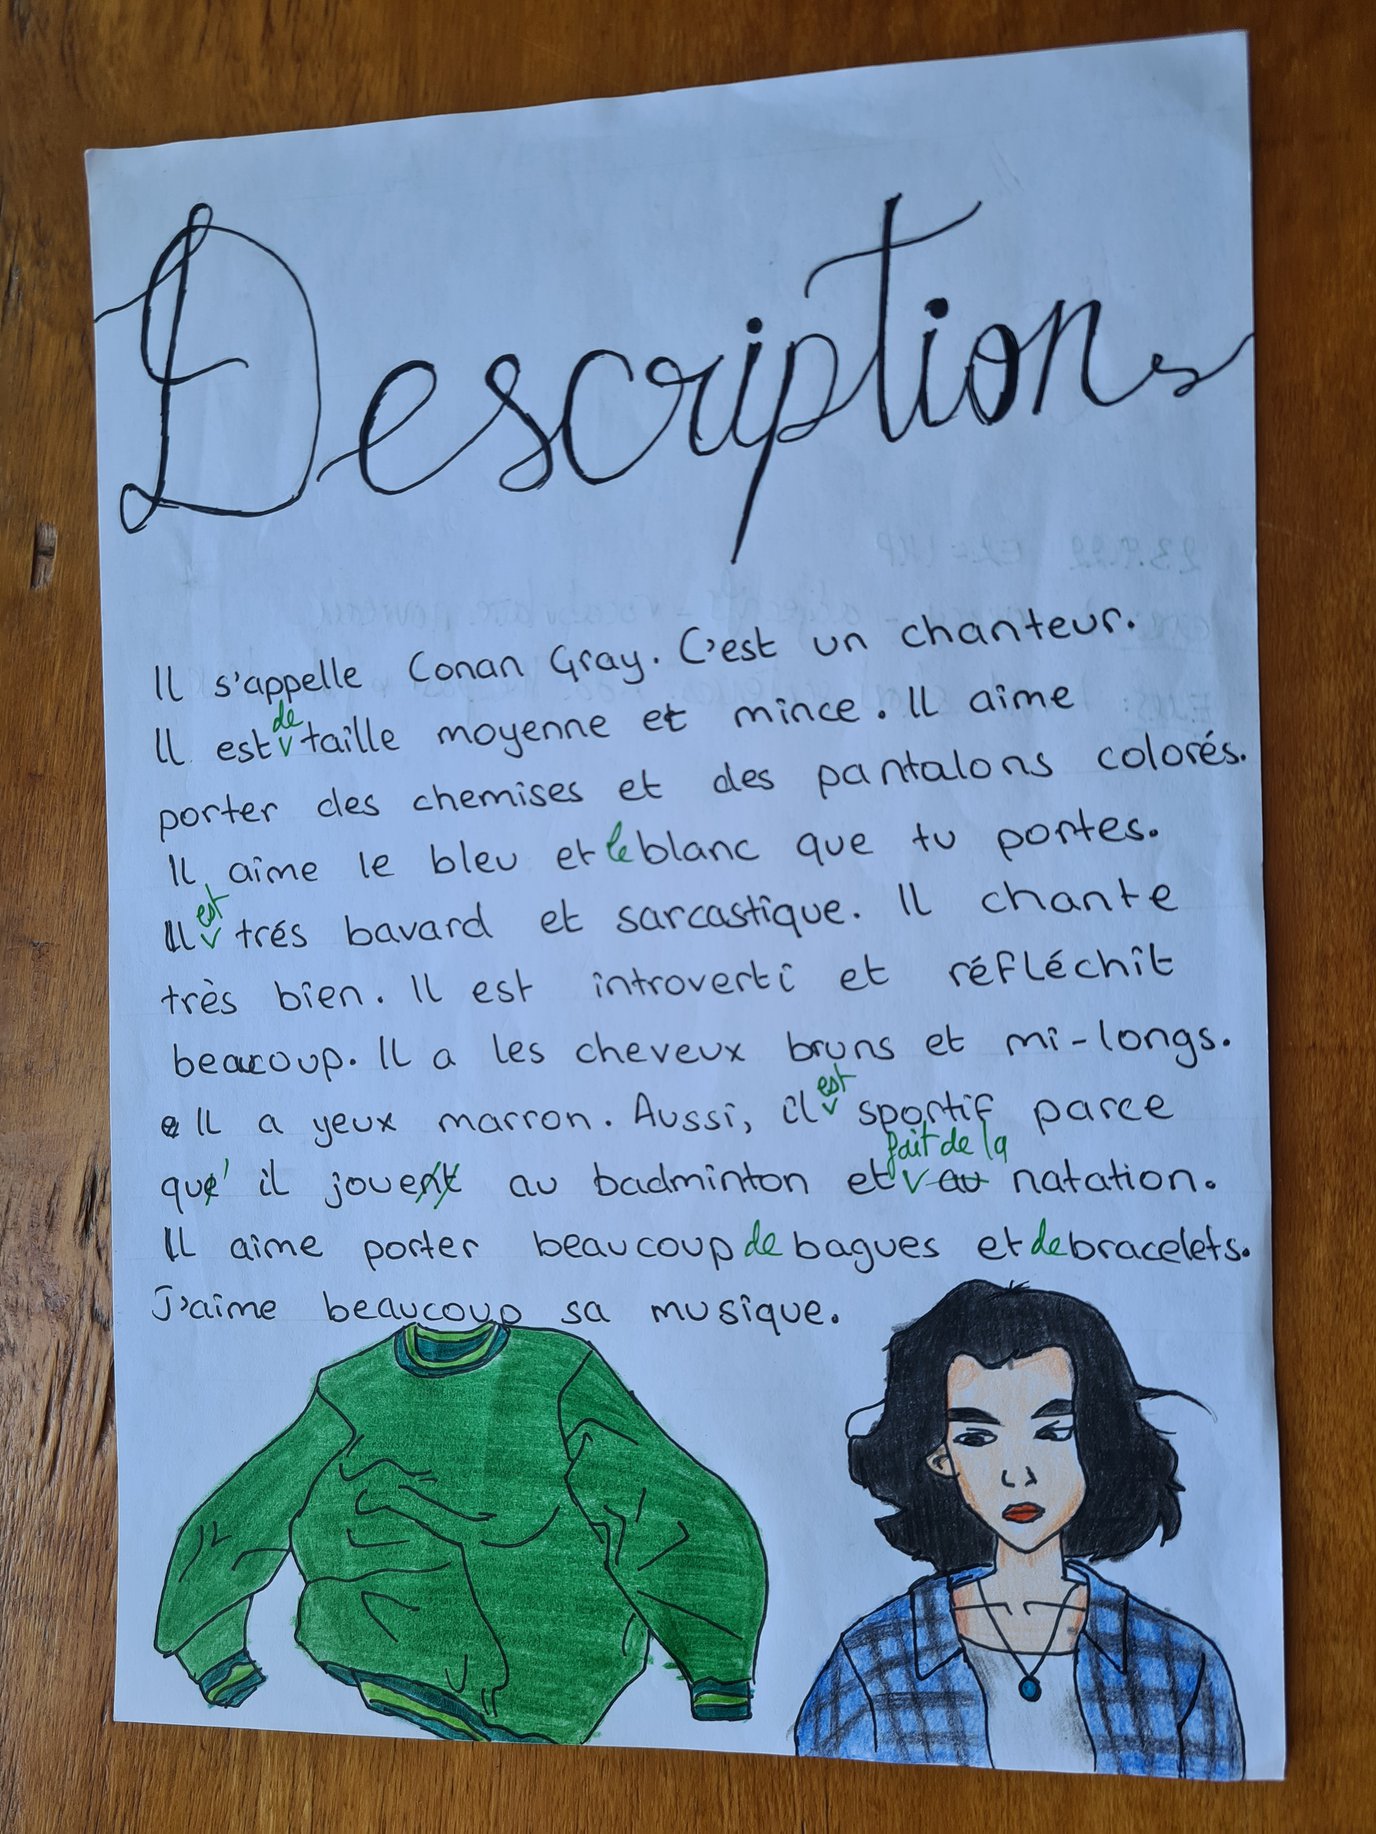 Descriptions
Il s'appelle Conan Gray. C'est un chanteur.
Il est de taille moyenne et mince. Il aime
porter des chemises et des pantalons colorés.
Il aime le bleu et le blanc que tu portes.
Il est trés bavard et sarcastique. Il chante
très bien. Il est introverti et réfléchit
beaucoup. Il a les cheveux bruns et mi-longs.
Il a yeux marron. Aussi, il est sportif parce
qu' il joue au badminton et fait de la au natation.
Il aime porter beaucoup de bagues et de bracelets.
J'aime beaucoup sa musique.